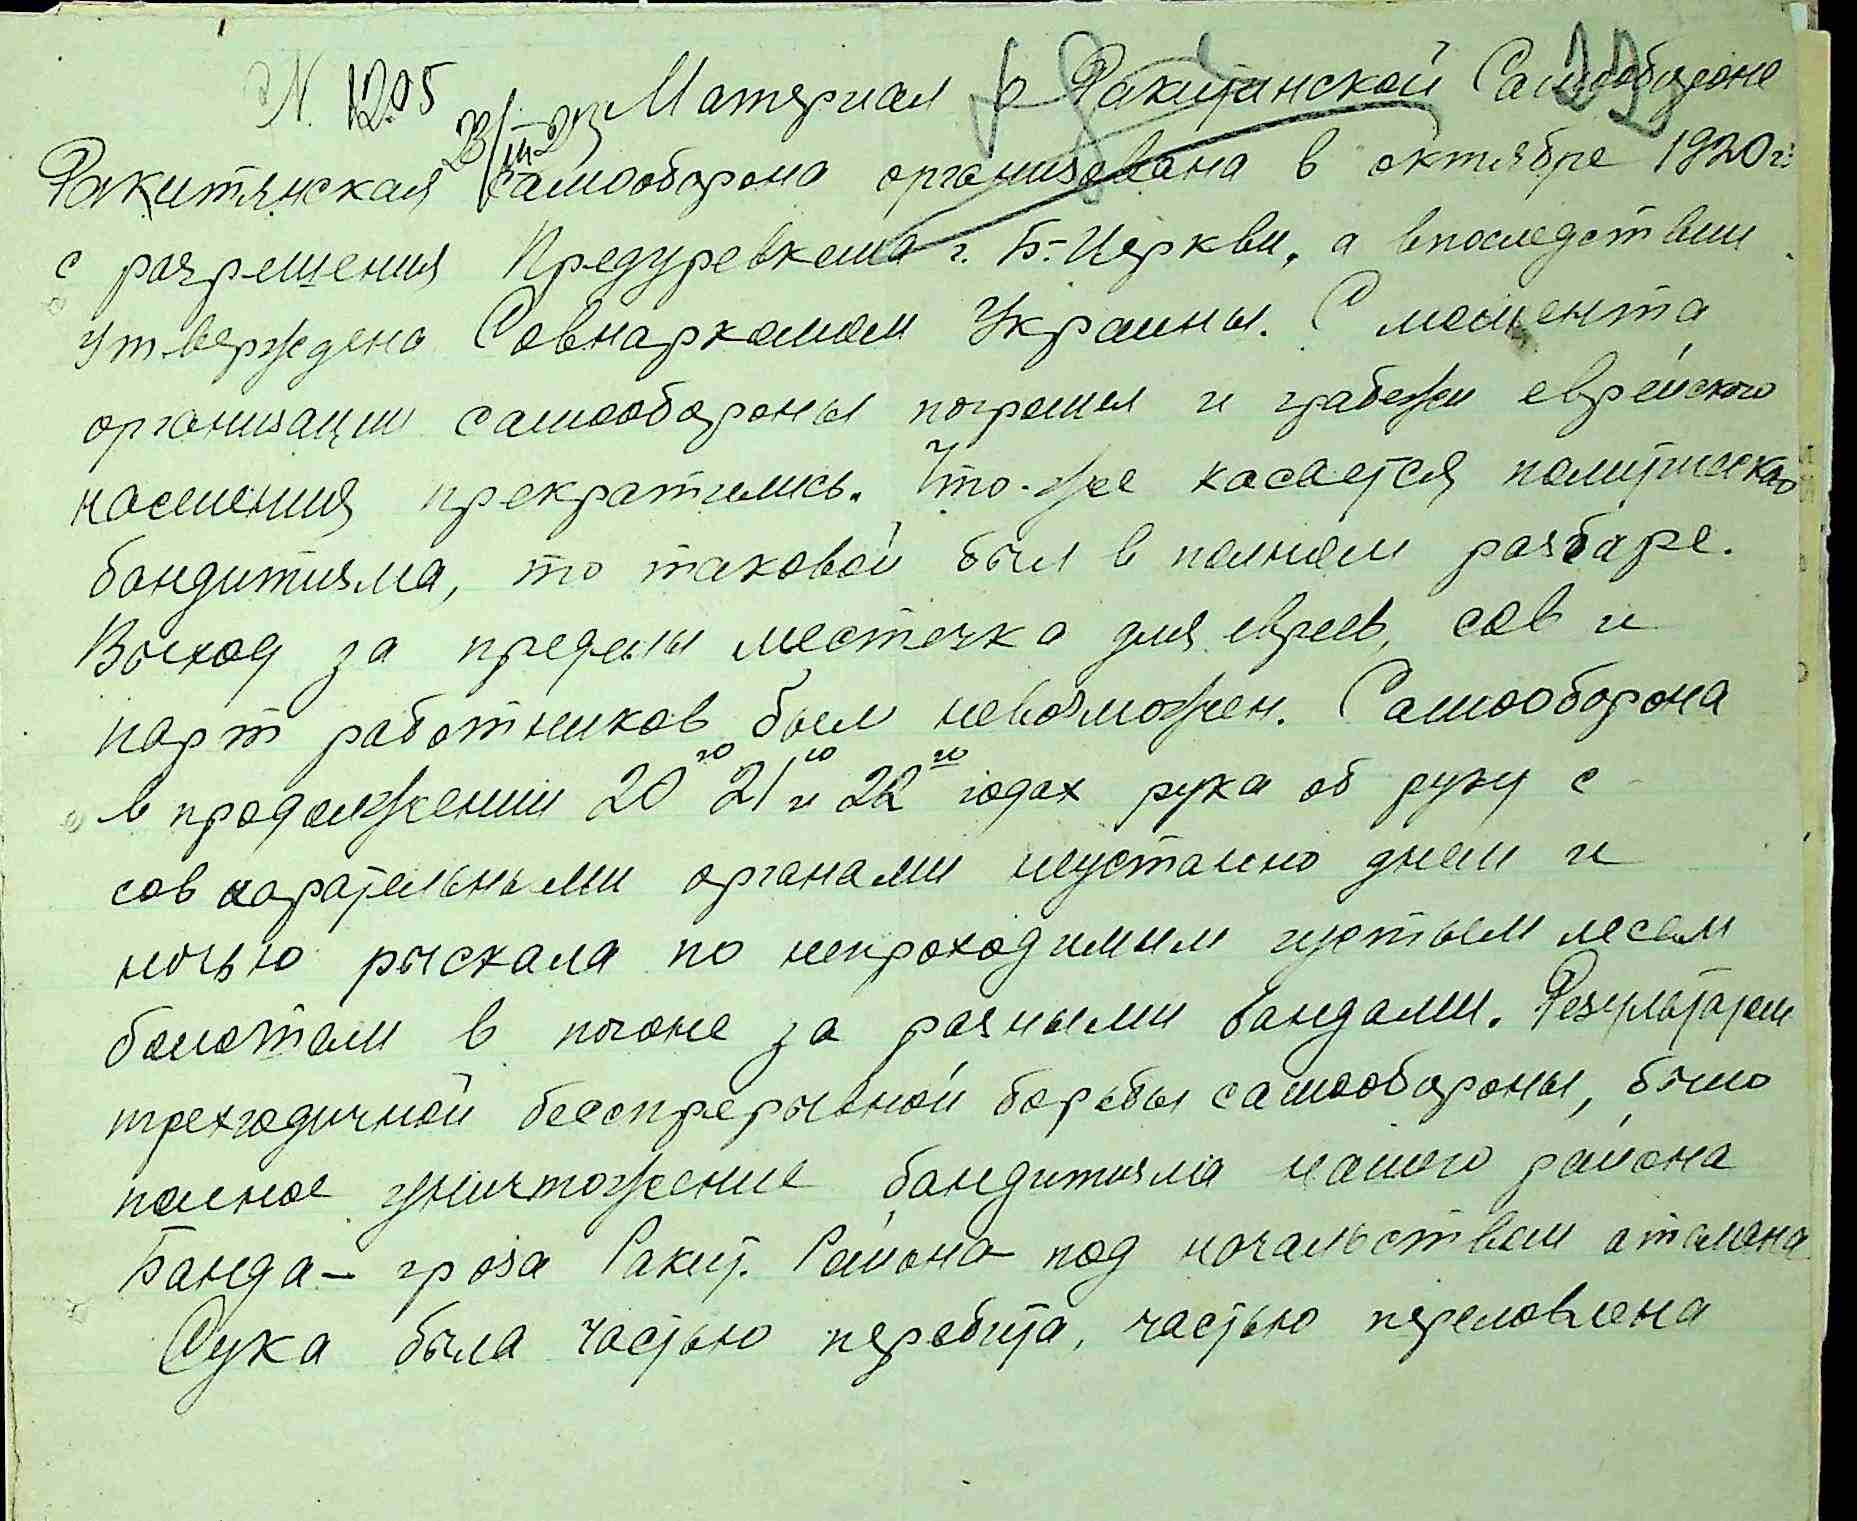 N. 1205 Материал о Ракитянской Самообороне
23/III-23
Ракитянская самооборона организована в октябре 1920 г.
с разрешения Предуревкома г. Б.-Церкви, а впоследствии
утверждена Совнаркомом Украины. С момента
организации самообороны погромы и грабежи еврейского
населения прекратились. Что-же касается политическаго
бандитизма, то таковой был в полном разгаре.
Выход за пределы местечка для евреев, сов и
парт работников был невозможен. Самооборона
в продолжении 20го 21го и 22го годах рука об руку с
сов карательными органами неустанно днем и
ночью рыскала по непроходимым густым лесам
болотам в погоне за разными бандами. Результатом
трехгодичной беспрерывной борьбы самообороны, было
полное уничтожение бандитизма нашего района
Банда – гроза Ракит. Района под начальством атамана
Сука была частью перебита, частью переловлена